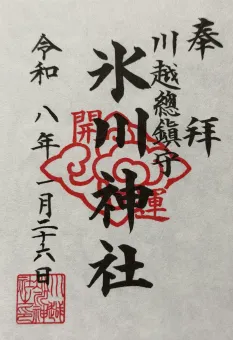 奉拜
川越總鎮守
氷川神社
開運
令和八年一月二十六日